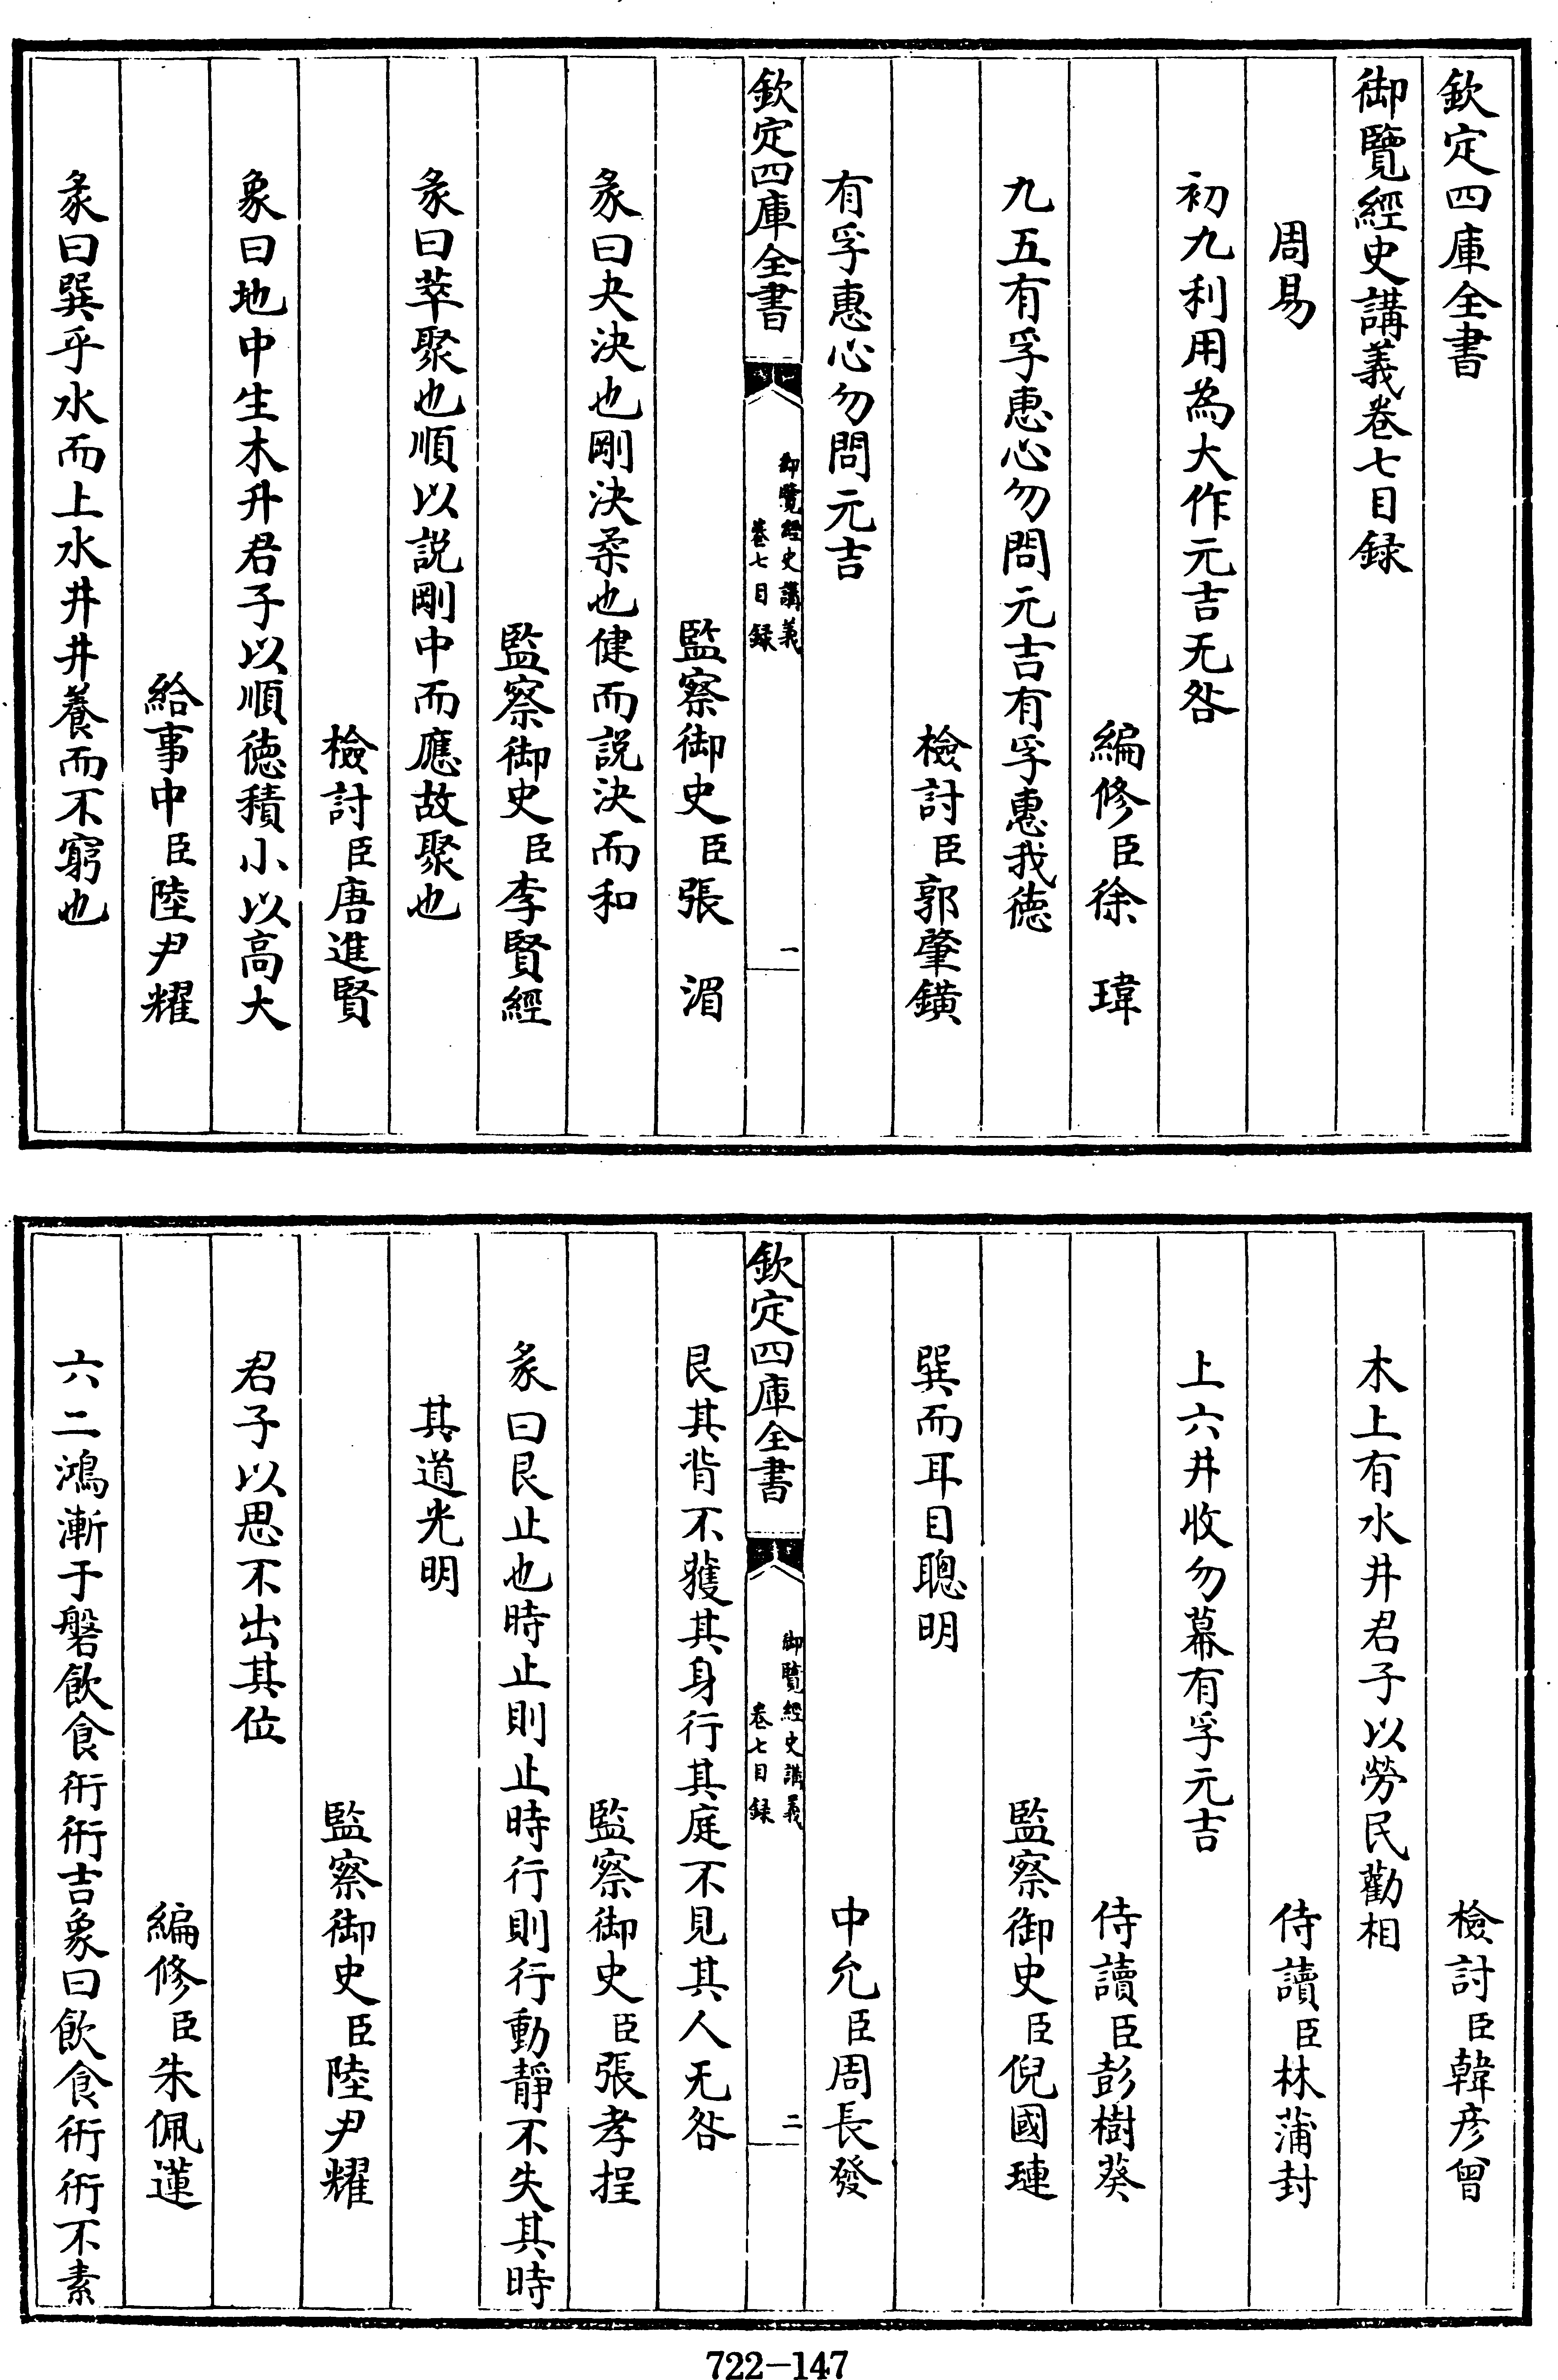 欽定四庫全書
御覽經史講義卷七目録
周易
初九利用為大作元吉无咎
編修臣徐瑋
九五有孚惠心勿問元吉有孚惠我徳
檢討臣郭肇鐄
有孚惠心勿問元吉
欽定四庫全書
御覽經史講義
卷七目録
一
監察御史臣張湄
彖曰夬決也剛決柔也健而説決而和
監察御史臣李賢經
彖曰萃聚也順以説剛中而應故聚也
檢討臣唐進賢
象曰地中生木升君子以順徳積小以高大
給事中臣陸尹耀
彖曰巽乎水而上水井井養而不窮也
檢討臣韓彦曾
木上有水井君子以勞民勸相
侍讀臣林蒲封
上六井收勿幕有孚元吉
侍讀臣彭樹葵
監察御史臣倪國璉
巽而耳目聰明
中允臣周長發
欽定四庫全書
御覽經史講義
卷七目録
二
艮其背不獲其身行其庭不見其人无咎
監察御史臣張孝捏
彖曰艮止也時止則止時行則行動靜不失其時
其道光明
監察御史臣陸尹耀
君子以思不出其位
編修臣朱佩蓮
六二鴻漸于磐飲食衎衎吉象曰飲食衎衎不素
722-147